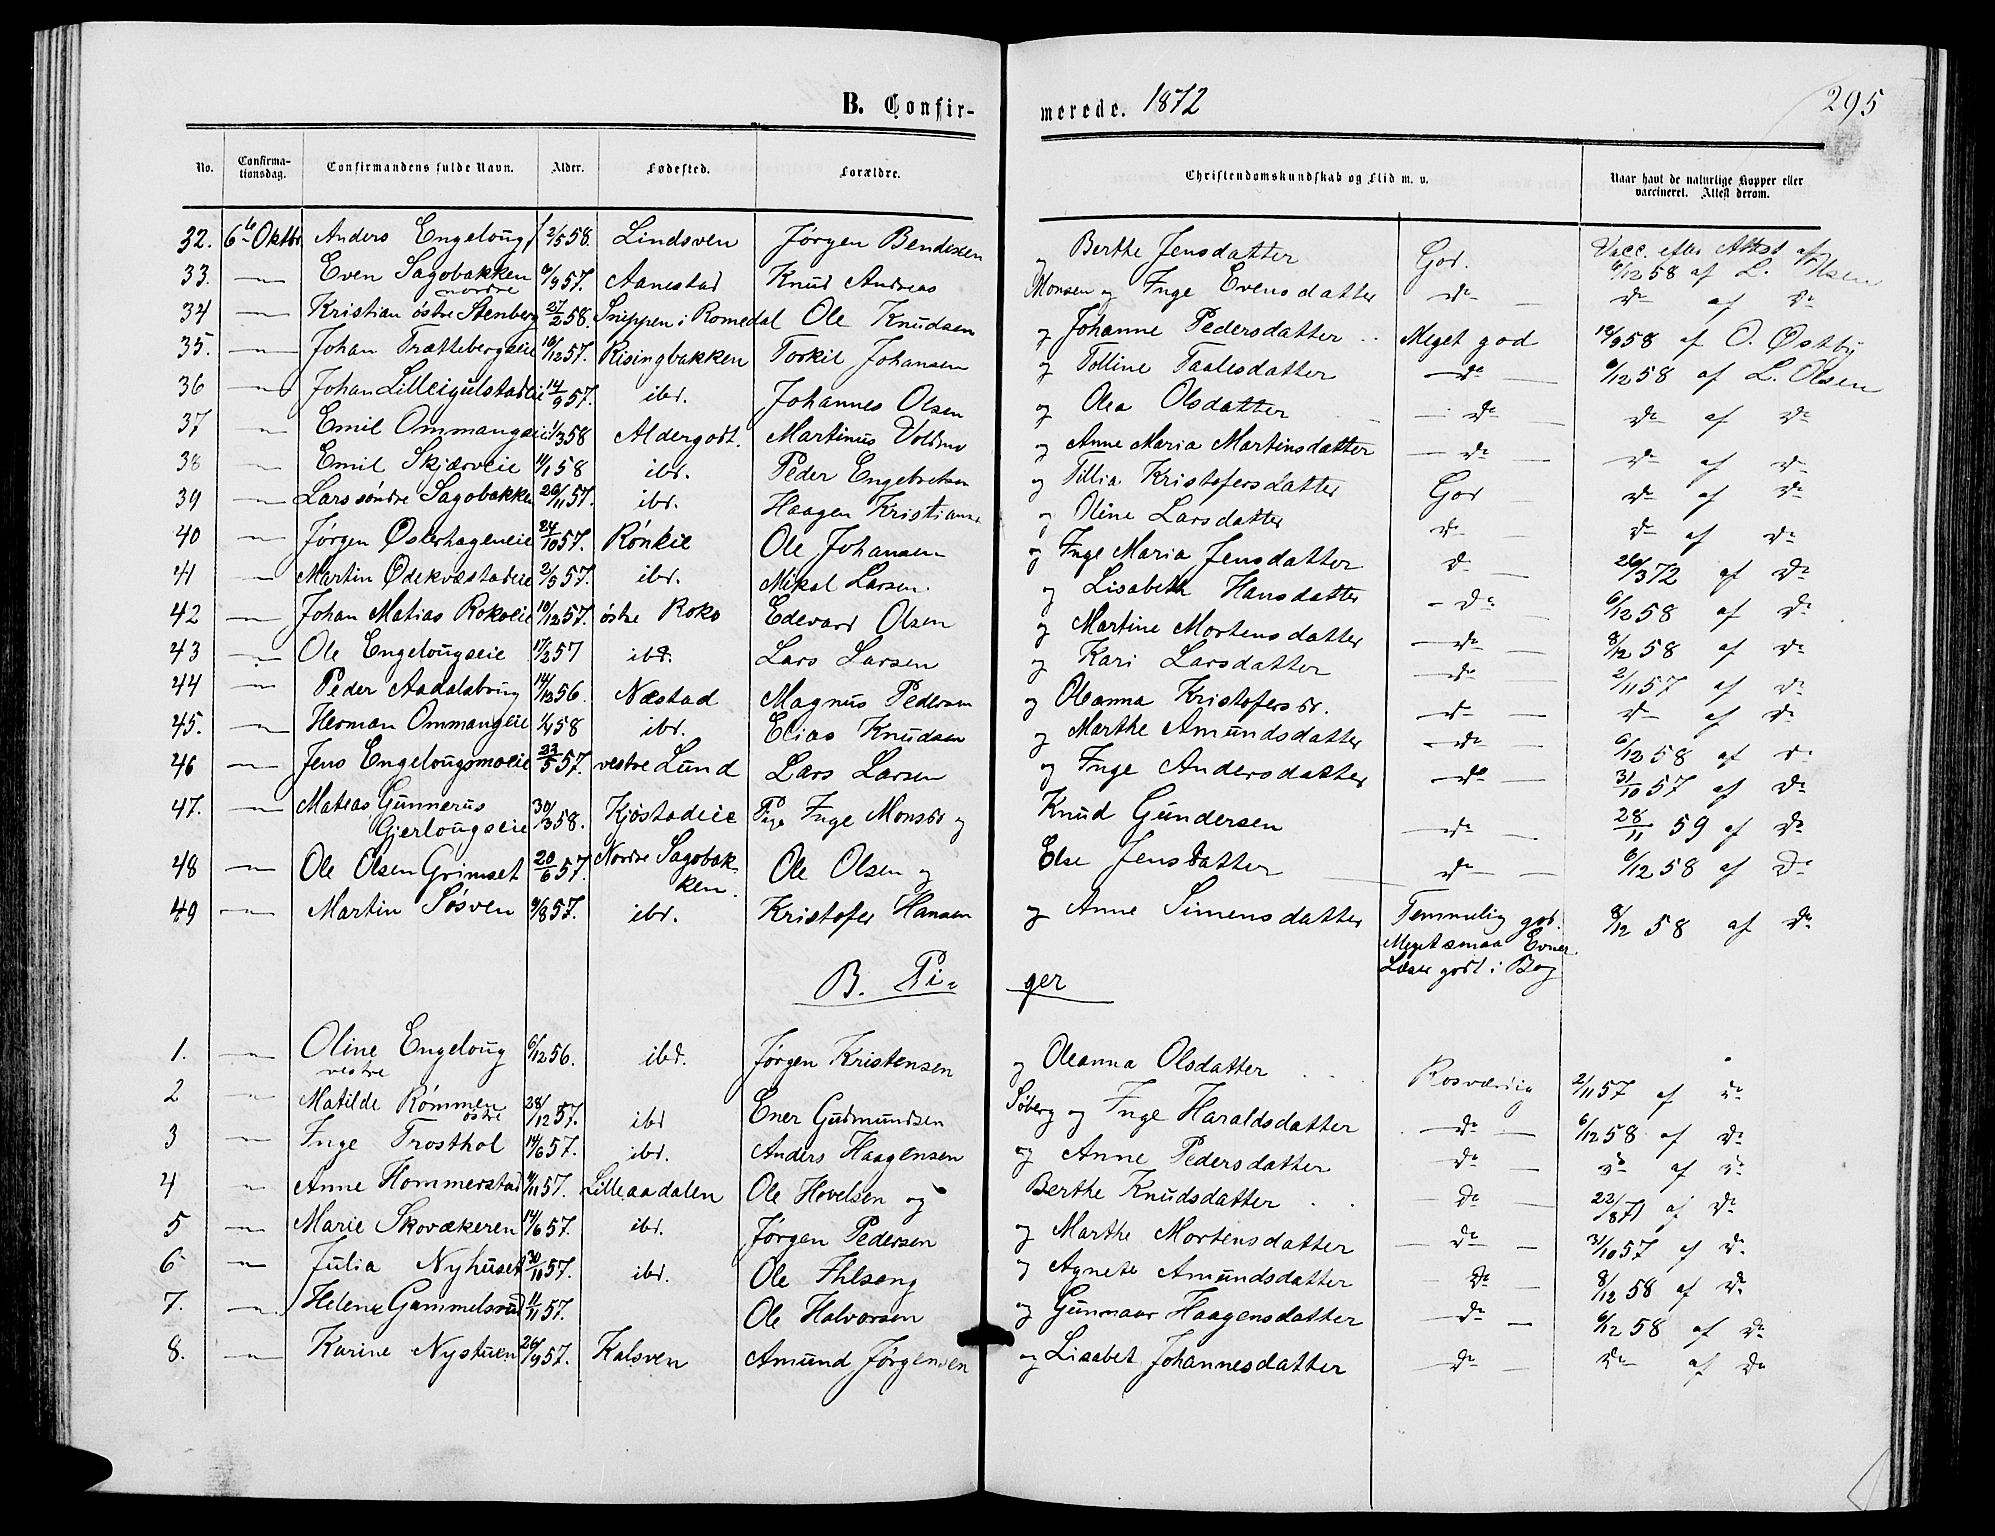 B. Confir- merede. 1872 295
No. Confirma-tionsdag. Confirmandens fulde Navn. Alder. Fødested. Forældre. Christendomskundskab og Flid m. v. Naar havt de naturlige Kopper eller vaccineret. Attest derom.
32. 6te Oktbr. Anders Engeloug 2/5 58. Lindsven Jørgen Bendixen og Berthe Jensdatter God. Vacc. efter Attst af 6/12 58 af L. Olsen
33. — Even Sagobakken nordre 6/9 57. Aanestad Knud Andreas Monsen og Inge Evensdatter do — do af do
34 — Kristian østre Stenberg 27/2 58. Sneppen i Romedal Ole Knudsen og Johanne Pedersdatter Meget god 19/9 58 af O. Østby
35. — Johan Trættebergeie 18/12 57. Risingbakken Torkil Johansen og Tolline Taalesdatter — do — 6/12 58 af L. Olsen
36 — Johan Lilleigulstadeie 14/9 57. ibd. Johannes Olsen og Olea Olsdatter — do — do af do
37 — Emil Ommangeie 1/3 58 Aldergodt. Martinus Voldmo og Anne Maria Martinsdatter — do — do af do
38 — Emil Skjærveie 11/1 58 ibd. Peder Engebretsen og Tillia Kristofersdatter God — do af do
39 — Lars søndre Sagobakke 26/11 57. ibd. Haagen Kristians. og Oline Larsdatter do — do af do
40 — Jørgen Østerhageneie 24/10 57. Rønkie Ole Johansen og Inge Maria Jensdatter do — 26/3 72 af do
41 — Martin Ødekvæstadeie 2/3 57. ibd. Mikal Larsen. og Lisabeth Hansdatter — do — 6/12 58 af do
42 — Johan Matias Rokoeie 10/12 57. østre Roko Edevard Olsen og Martine Mortensdatter — do — 8/12 58 af do
43 — Ole Engelougseie 17/2 57 ibd. Lars Larsen og Kari Larsdatter — do — 2/11 57 af do
44 — Peder Aadalsbrug 14/12 56. Næstad Magnus Pedersen og Oleanna Kristofersdr. — do — do af do
45. — Herman Ommangeie 1/4 58 ibd. Elias Knudsen og Marthe Amundsdatter — do — 6/12 58 af do
46 — Jens Engelougsmoeie 23/5 57. vestre Lund Lars Larsen og Inge Andersdatter — do — 31/10 57 af do
47. — Matias Gunnerus Gjerlougseie 30/3 58. Kjøstadeie Pige Inge Monsdr og Knud Gundersen — do — 28/11 59 af do
48 — Ole Olsen Grimset 20/6 57. Nordre Sagobak-ken. Ole Olsen og Else Jensdatter — do — 6/12 58 af do
49 — Martin Søsven 9/8 57. ibd. Kristofer Hansen og Anne Simensdatter Temmelig god. 8/12 58 af do
Meget smaa Evner
Læser godt i Bog
B. Pi- ger
1. — Oline Engeloug vestre 6/12 56. ibd. Jørgen Kristensen og Oleanna Olsdatter Rosværdig 2/11 57 af do
2 — Matilde Rømmen østre 28/12 57. ibd Ener Gudmundsen Søberg og Inge Haraldsdatter — do — 6/12 58 af do
3 — Inge Trosthol 14/6 57. ibd. Anders Haagensen og Anne Pedersdatter do — do af do
4 — Anne Hommerstad 9/11 57. Lilleaadalen Ole Hovelsen og Berthe Knudsdatter — do — 22/8 71 af do
5 — Marie Skovækeren 14/6 57. ibd. Jørgen Pedersen og Marthe Mortensdatter — do — 31/10 57 af do
6 — Julia Nyhuset 30/10 57. ibd. Ole Ihlseng og Agnete Amundsdatter — do — 8/12 58 af do
7. — Helene Gammelsrud 11/11 57. Ole Halvorsen og Gunnaar Haagensdatter — do — 6/12 58 af do
8. — Karine Nystuen 26/9 57. Kalsven Amund Jørgensen og Lisabet Johannesdatter — do — do af do